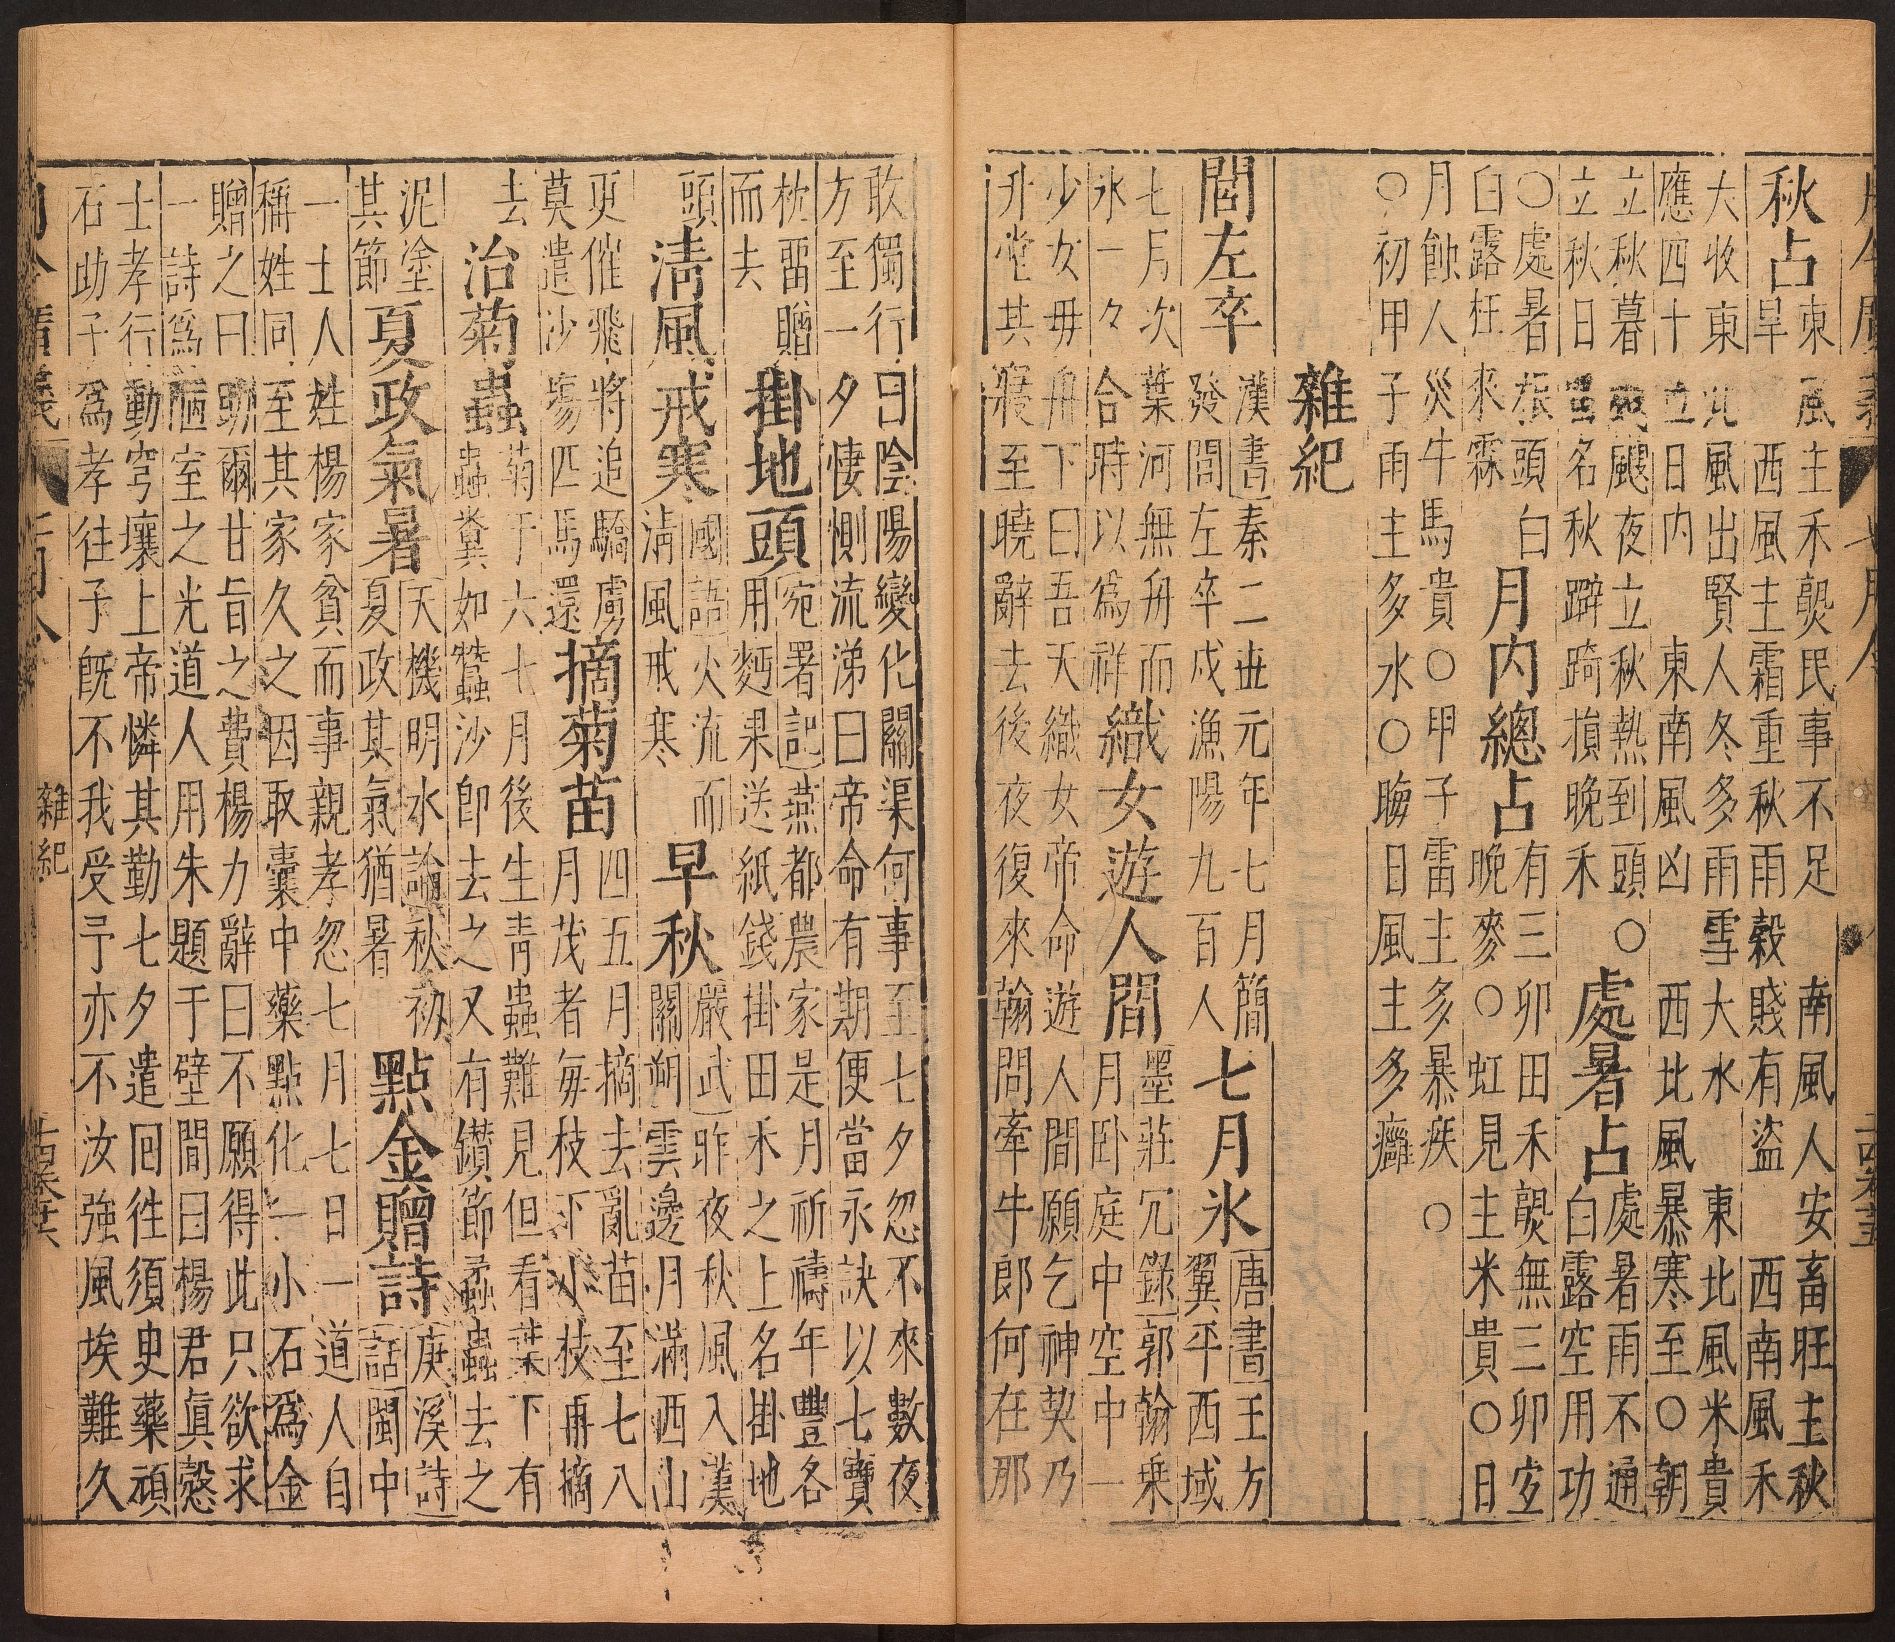 秋占
東風主禾民事不足　南風人安畜旺主秋
旱　西風主霜重秋雨穀賤有盜　西南風禾
大收東北風出賢人冬多雨雪大水　東北風米貴
應四十五日内　東南風凶　西北風暴寒至〇朝
立秋暮颶夜立秋熱到頭〇
立秋日雷名秋踦損晚禾
處暑占
處暑雨不通
白露空用功
〇處暑根頭白
白露枉來霖
月内總占
有三卯田禾無三卯宜
晚麥〇虹見主米貴〇日
月蝕人災牛馬貴〇甲子雷主多暴疾〇
〇初甲子雨主多水〇晦日風主多癰
雜紀
閭左卒
漢書秦二世元年七月簡
發閭左卒戍漁陽九百人
七月氷
唐書王方
翼平西域
七月次葉河無舟而
氷一夕合時以爲祥
織女遊人間
墨莊冗錄郭翰乗
月卧庭中空中一
少女毋舟下曰吾天織女帝命遊人間願乞神契乃
升堂其寢至曉辭去後夜復來翰問牽牛郎何在那
敢獨行曰陰陽變化關渠何事至七夕忽不來數夜
方至一夕悽惻流涕曰帝命有期便當永訣以七寶
枕畱贈
而去
掛地頭
宛署記燕都農家是月祈禱年豐各
用麪果送紙錢掛田禾之上名掛地
頭
清風戒寒
國語火流而
清風戒寒
早秋
嚴武昨夜秋風入漢
關朔雲邊月滿西山
更催飛將追驕虜
莫遣沙塲匹馬還
摘菊苗
四五月摘去亂苗至七八
月茂者每枝下小枝再摘
去
治菊蟲
菊于六七月後生青蟲難見但看葉下有
蟲糞如蠶沙即去之又有鑽節柔蟲去之
泥塗
其節
夏政氣暑
天機明水論秋初
夏政其氣猶暑
點金贈詩
庚溪詩
話閩中
一士人姓楊家貧而事親孝忽七月七日一道人自
稱姓同至其家久之因取囊中藥點化一小石爲金
贈之曰助爾甘旨之費楊力辭曰不願得此只欲求
一詩爲陋室之光道人用朱題于壁間曰楊君眞愨
士孝行動穹壤上帝憐其勤七夕遣回往須臾藥頑
石助子爲孝往子旣不我受予亦不汝強風埃難久
雜紀